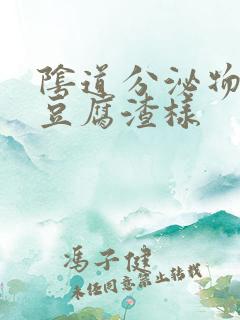 陰道分泌物
豆腐渣樣
馮子健
未任同意禁止转载